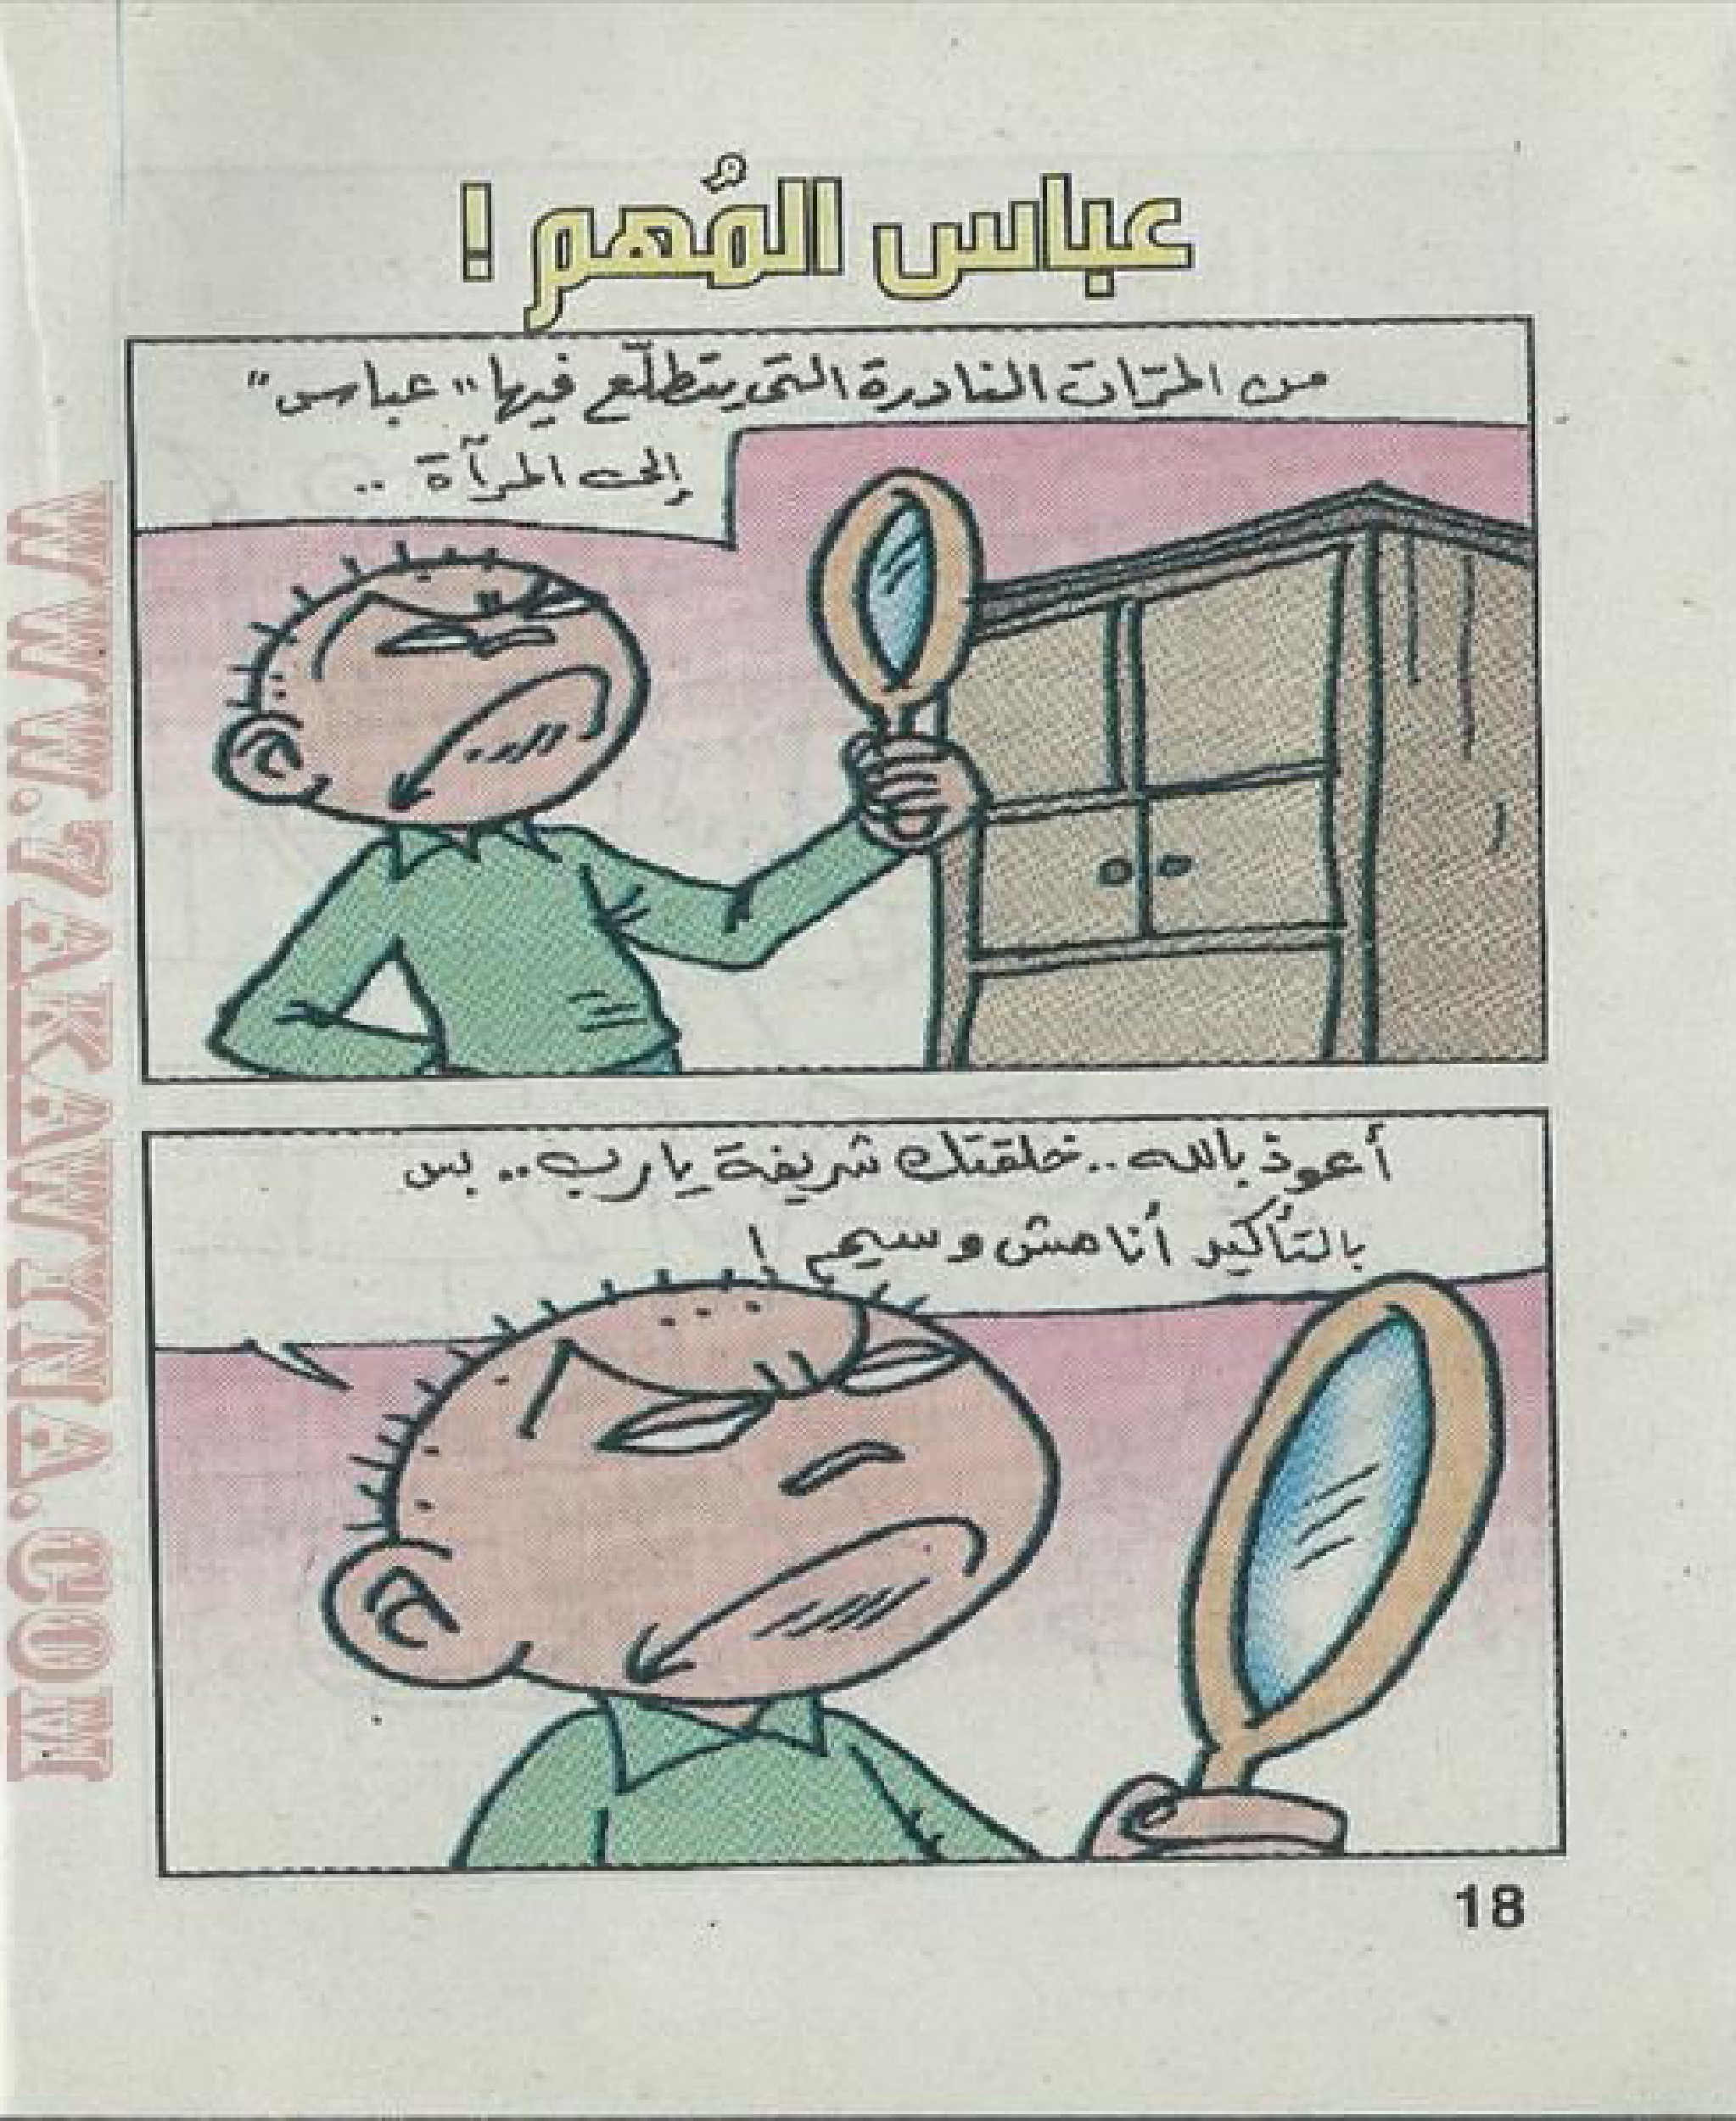 عباس المُهم !
من المرّات النادرة التى يتطلّع فيها "عباس"
إلى المرآة ..
أعوذ بالله .. خلقتك شريفة يارب .. بس
بالتأكيد أنا مش وسيم !
18
WWW.ZAKAWINA.COM